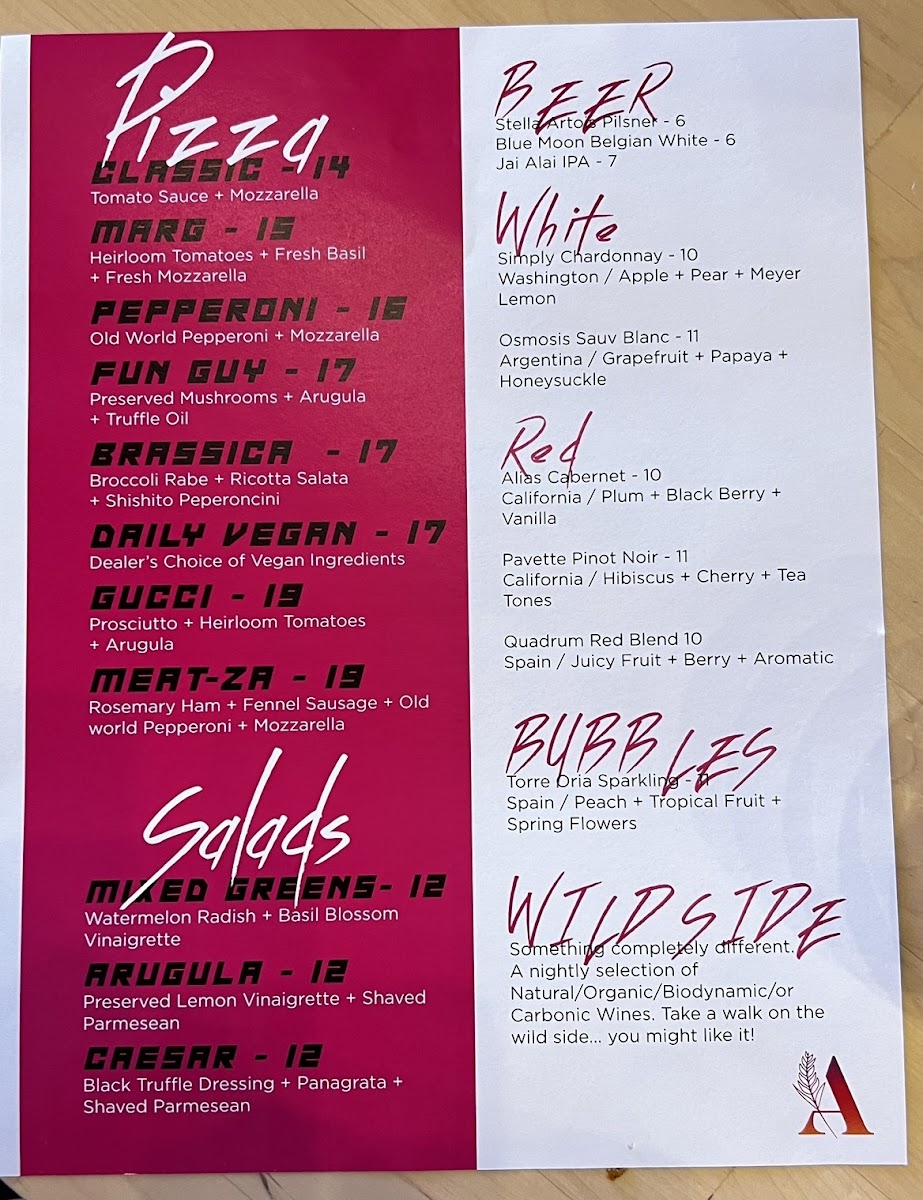 Pizza
CLASSIC - 14
Tomato Sauce + Mozzarella
MARG - 15
Heirloom Tomatoes + Fresh Basil
+ Fresh Mozzarella
PEPPERONI - 16
Old World Pepperoni + Mozzarella
FUN GUY - 17
Preserved Mushrooms + Arugula
+ Truffle Oil
BRASSICA - 17
Broccoli Rabe + Ricotta Salata
+ Shishito Peperoncini
DAILY VEGAN - 17
Dealer's Choice of Vegan Ingredients
GUCCI - 19
Prosciutto + Heirloom Tomatoes
+ Arugula
MEAT-ZA - 19
Rosemary Ham + Fennel Sausage + Old
world Pepperoni + Mozzarella
Salads
MIXED GREENS- 12
Watermelon Radish + Basil Blossom
Vinaigrette
ARUGULA - 12
Preserved Lemon Vinaigrette + Shaved
Parmesean
CAESAR - 12
Black Truffle Dressing + Panagrata +
Shaved Parmesean
BEER
Stella Artois Pilsner - 6
Blue Moon Belgian White - 6
Jai Alai IPA - 7
White
Simply Chardonnay - 10
Washington / Apple + Pear + Meyer
Lemon
Osmosis Sauv Blanc - 11
Argentina / Grapefruit + Papaya +
Honeysuckle
Red
Alias Cabernet - 10
California / Plum + Black Berry +
Vanilla
Pavette Pinot Noir - 11
California / Hibiscus + Cherry + Tea
Tones
Quadrum Red Blend 10
Spain / Juicy Fruit + Berry + Aromatic
BUBBLES
Torre Oria Sparkling - 11
Spain / Peach + Tropical Fruit +
Spring Flowers
WILD SIDE
Something completely different.
A nightly selection of
Natural/Organic/Biodynamic/or
Carbonic Wines. Take a walk on the
wild side... you might like it!
A